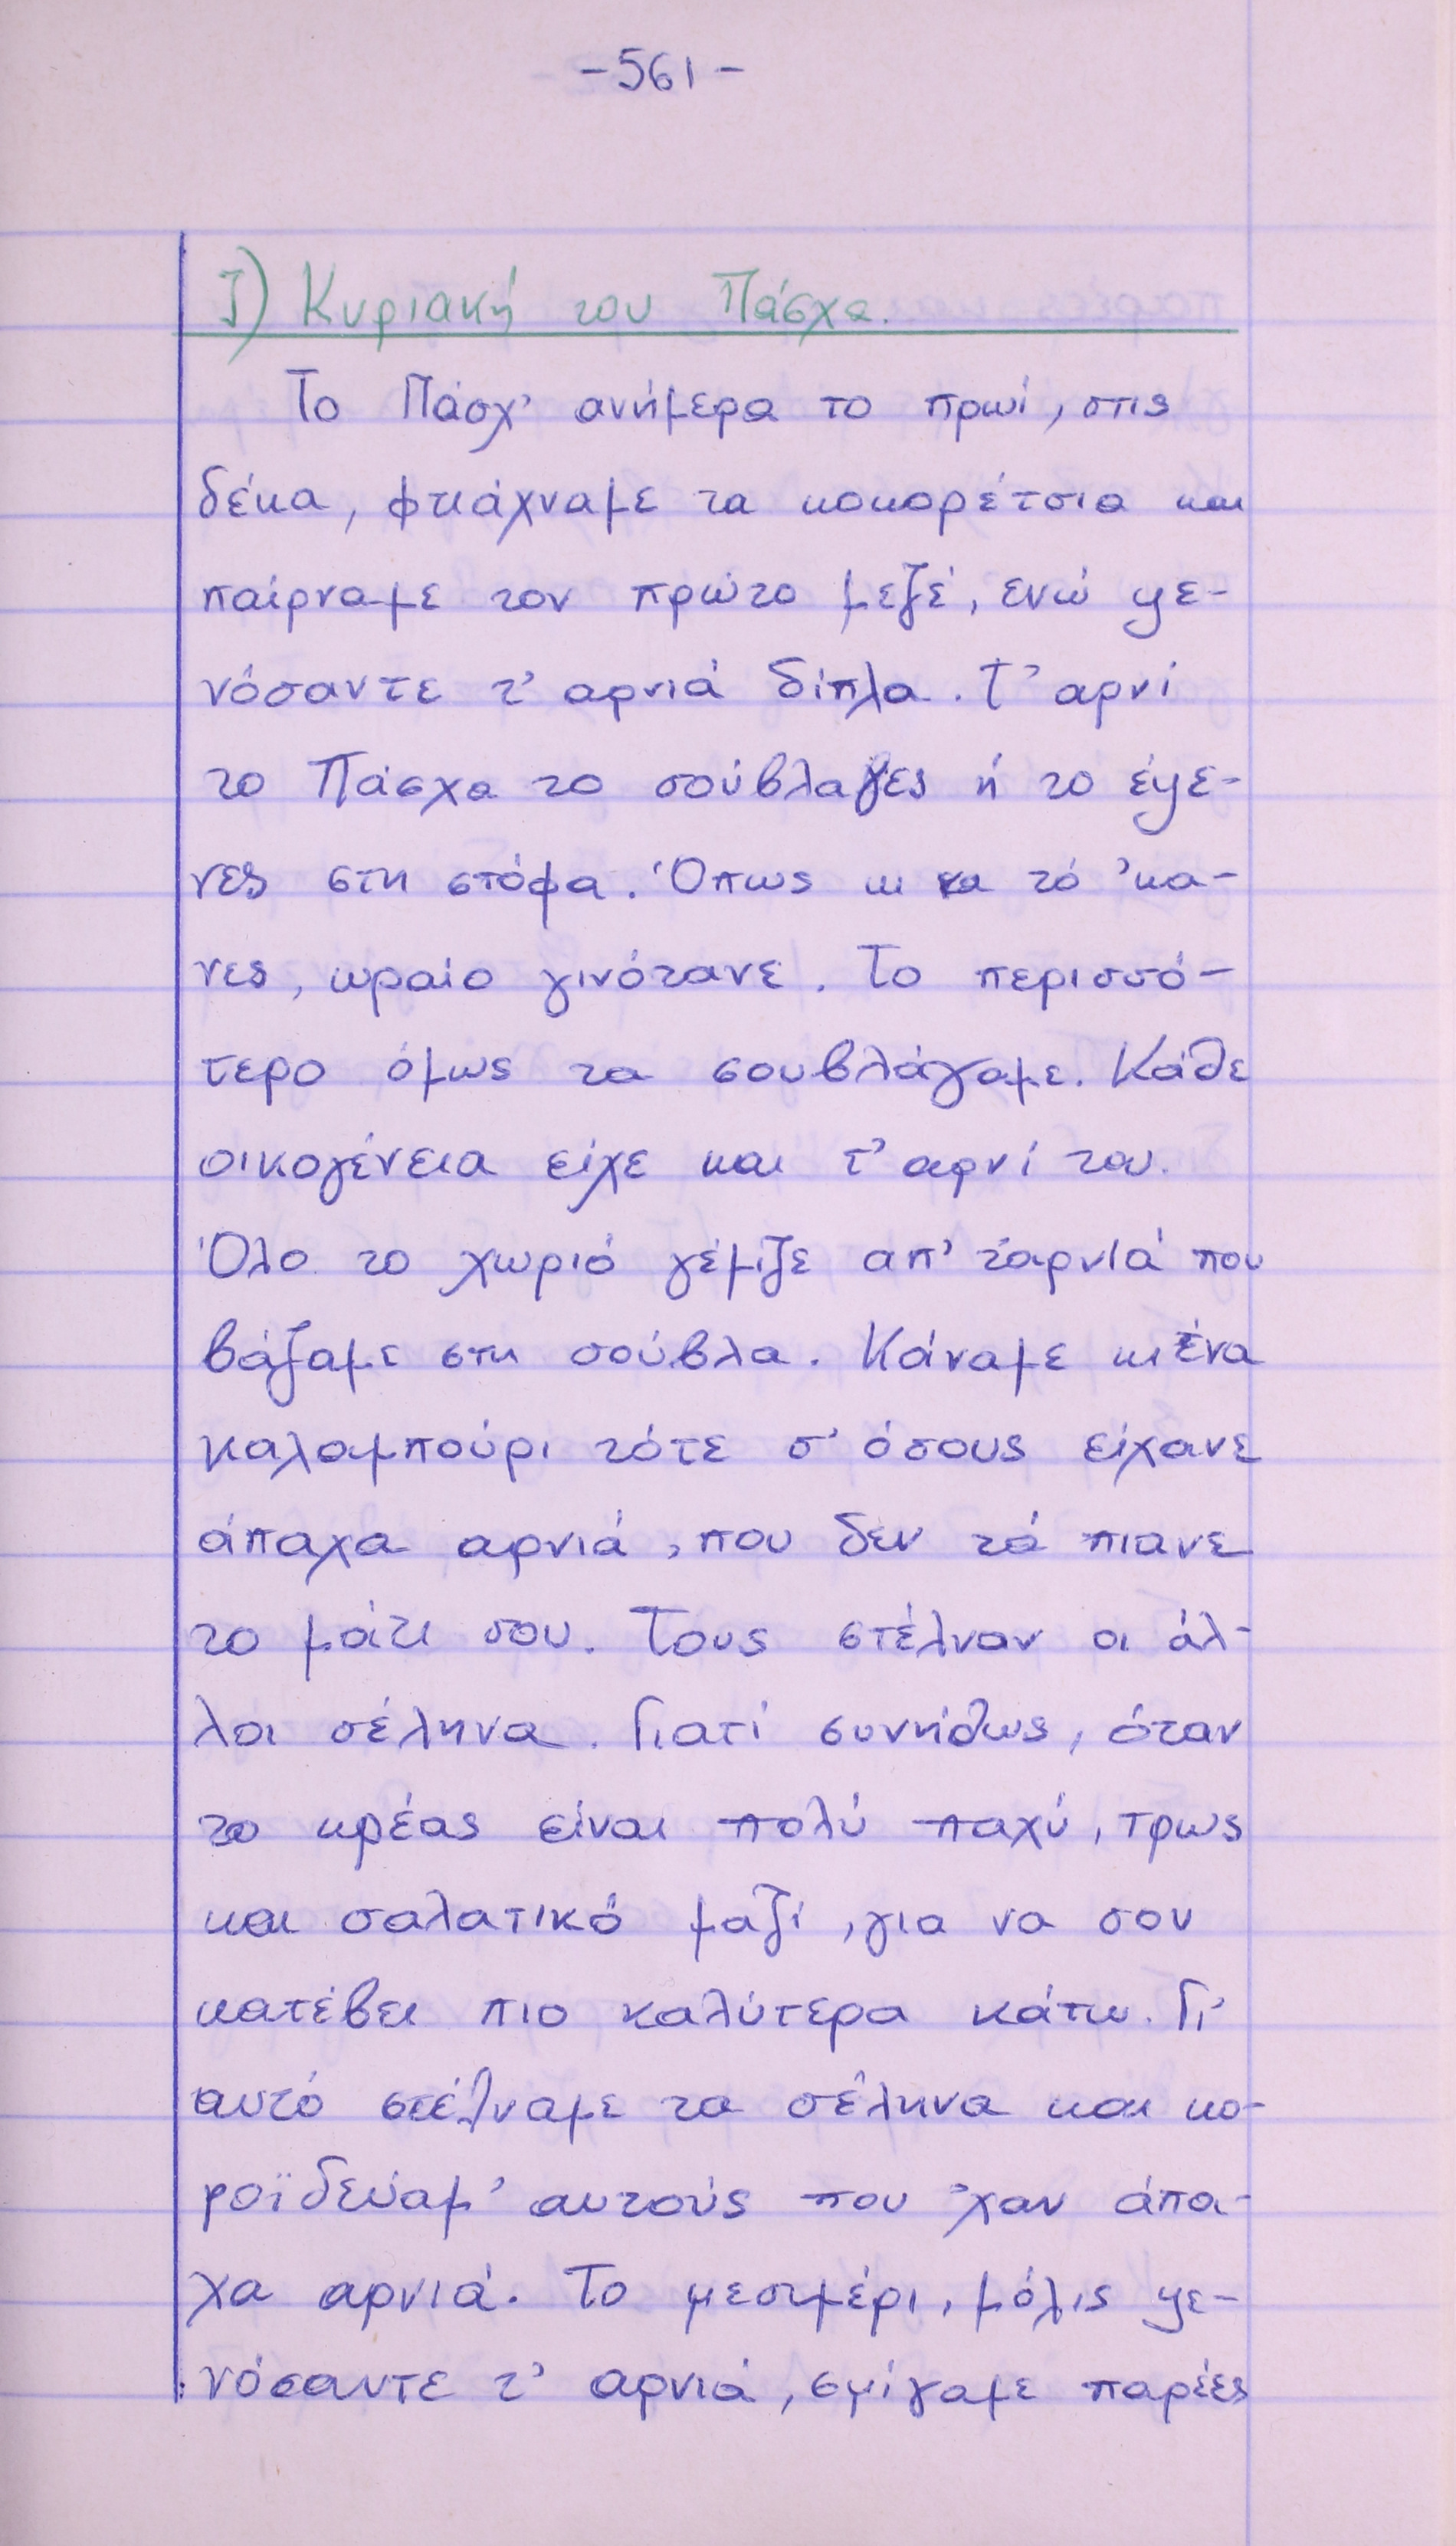 -561-
Ι) Κυριακή του Πάσχα.
Το Πάσχ' ανήμερα το πρωί, στις
δέκα, φτιάχναμε τα κοκορέτσια και
παίρναμε τον πρώτο μεζέ, ενώ ψε-
νόσαντε τ' αρνιά δίπλα. Τ' αρνί
το Πάσχα το σούβλαγες ή το έψε-
νες στη στόφα. Όπως κι να τό 'κα-
νες, ωραίο γινότανε. Το περισσό-
τερο όμως τα σουβλάγαμε. Κάθε
οικογένεια είχε και τ' αρνί του.
Όλο το χωριό γέμιζε απ' τ'αρνιά που
βάζαμε στη σούβλα. Κάναμε κι ένα
καλαμπούρι τότε σ' όσους είχανε
άπαχα αρνιά, που δεν τά πιανε
το μάτι σου. Τους στέλναν οι άλ-
λοι σέληνα. Γιατί συνήθως, όταν
το κρέας είναι πολύ παχύ, τρως
και σαλατικό μαζί, για να σου
κατέβει πιο καλύτερα κάτω. Γι'
αυτό στέλναμε τα σέληνα και κο-
ροϊδεύαμ' αυτούς που 'χαν άπα-
χα αρνιά. Το μεσημέρι, μόλις ψε-
νόσαντε τ' αρνιά, σμίγαμε παρέες